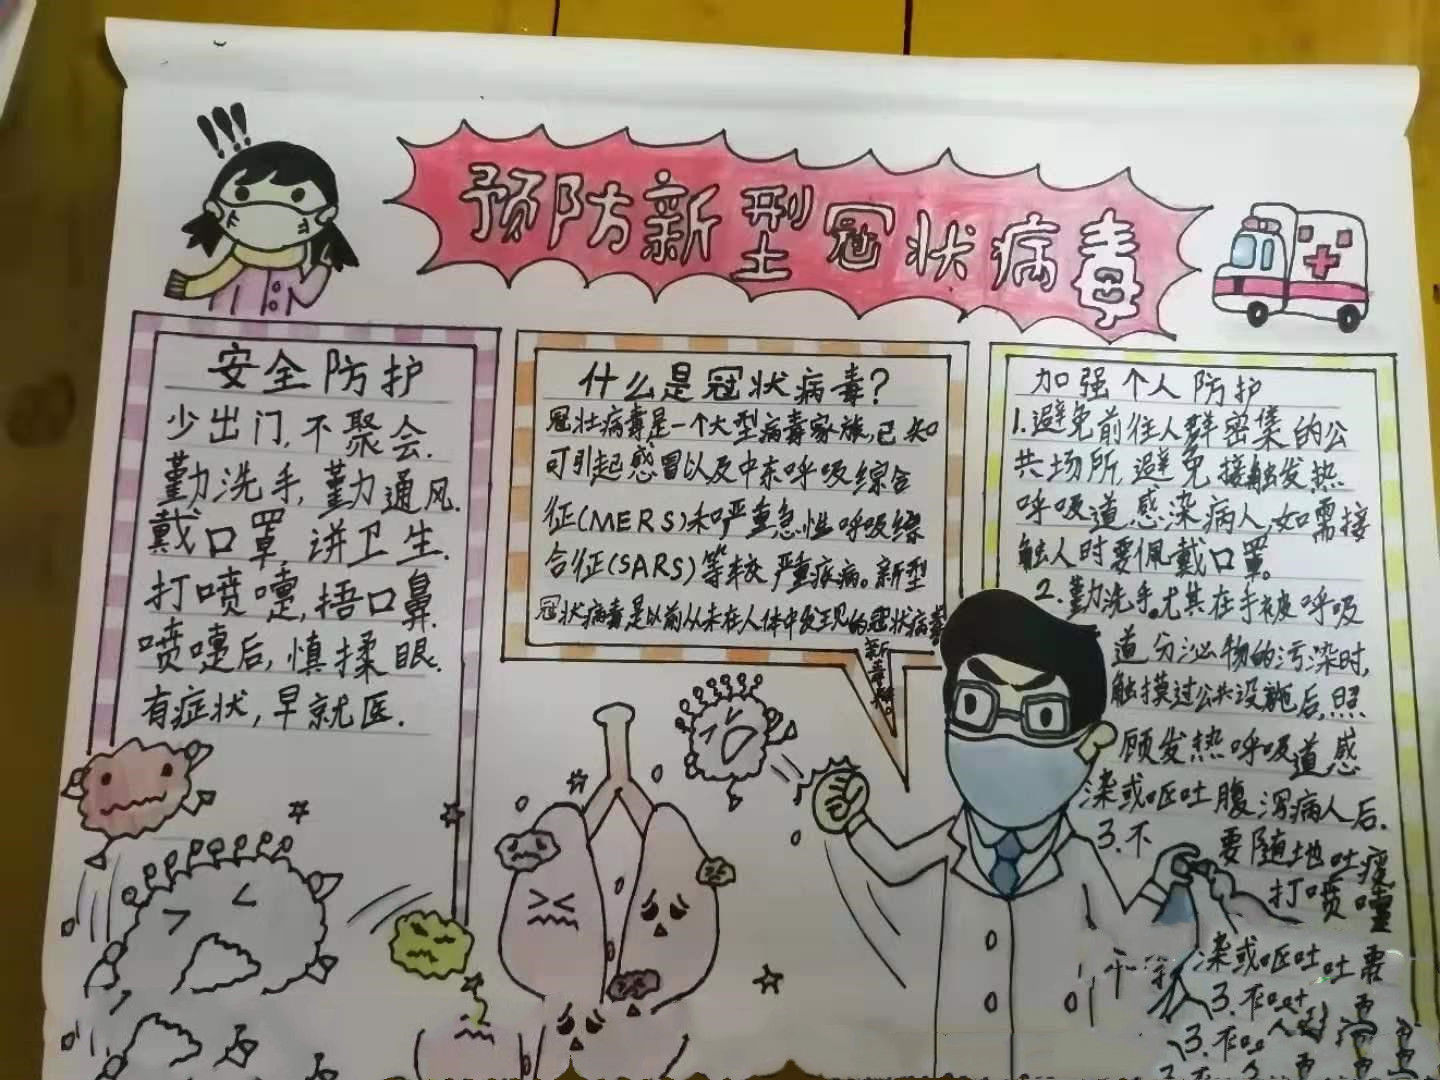 预防新型冠状病毒
安全防护
少出门,不聚会.
勤洗手,勤通风.
戴口罩,讲卫生.
打喷嚏,捂口鼻.
喷嚏后,慎揉眼.
有症状,早就医.
什么是冠状病毒?
冠壮病毒是一个大型病毒家族,已知
可引起感冒以及中东呼吸综合
征(MERS)和严重急性呼吸综
合征(SARS)等较严重疾病。新型
冠状病毒是以前从未在人体中发现的冠状病毒
新毒株。
加强个人防护
1.避免前往人群密集的公
共场所,避免接触发热
呼吸道感染病人,如需接
触人时要佩戴口罩。
2.勤洗手。尤其在手被呼吸
道分泌物的污染时,
触摸过公共设施后,照
顾发热呼吸道感
染或呕吐腹泻病人后.
3.不要随地吐痰
打喷嚏
染或呕吐吐要
3.不
3.不